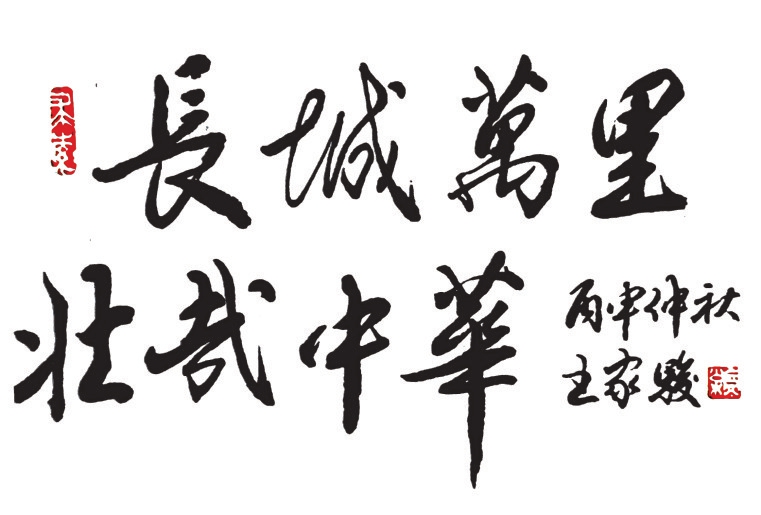 長城萬里
壯哉中華
丙申仲秋
王家駿